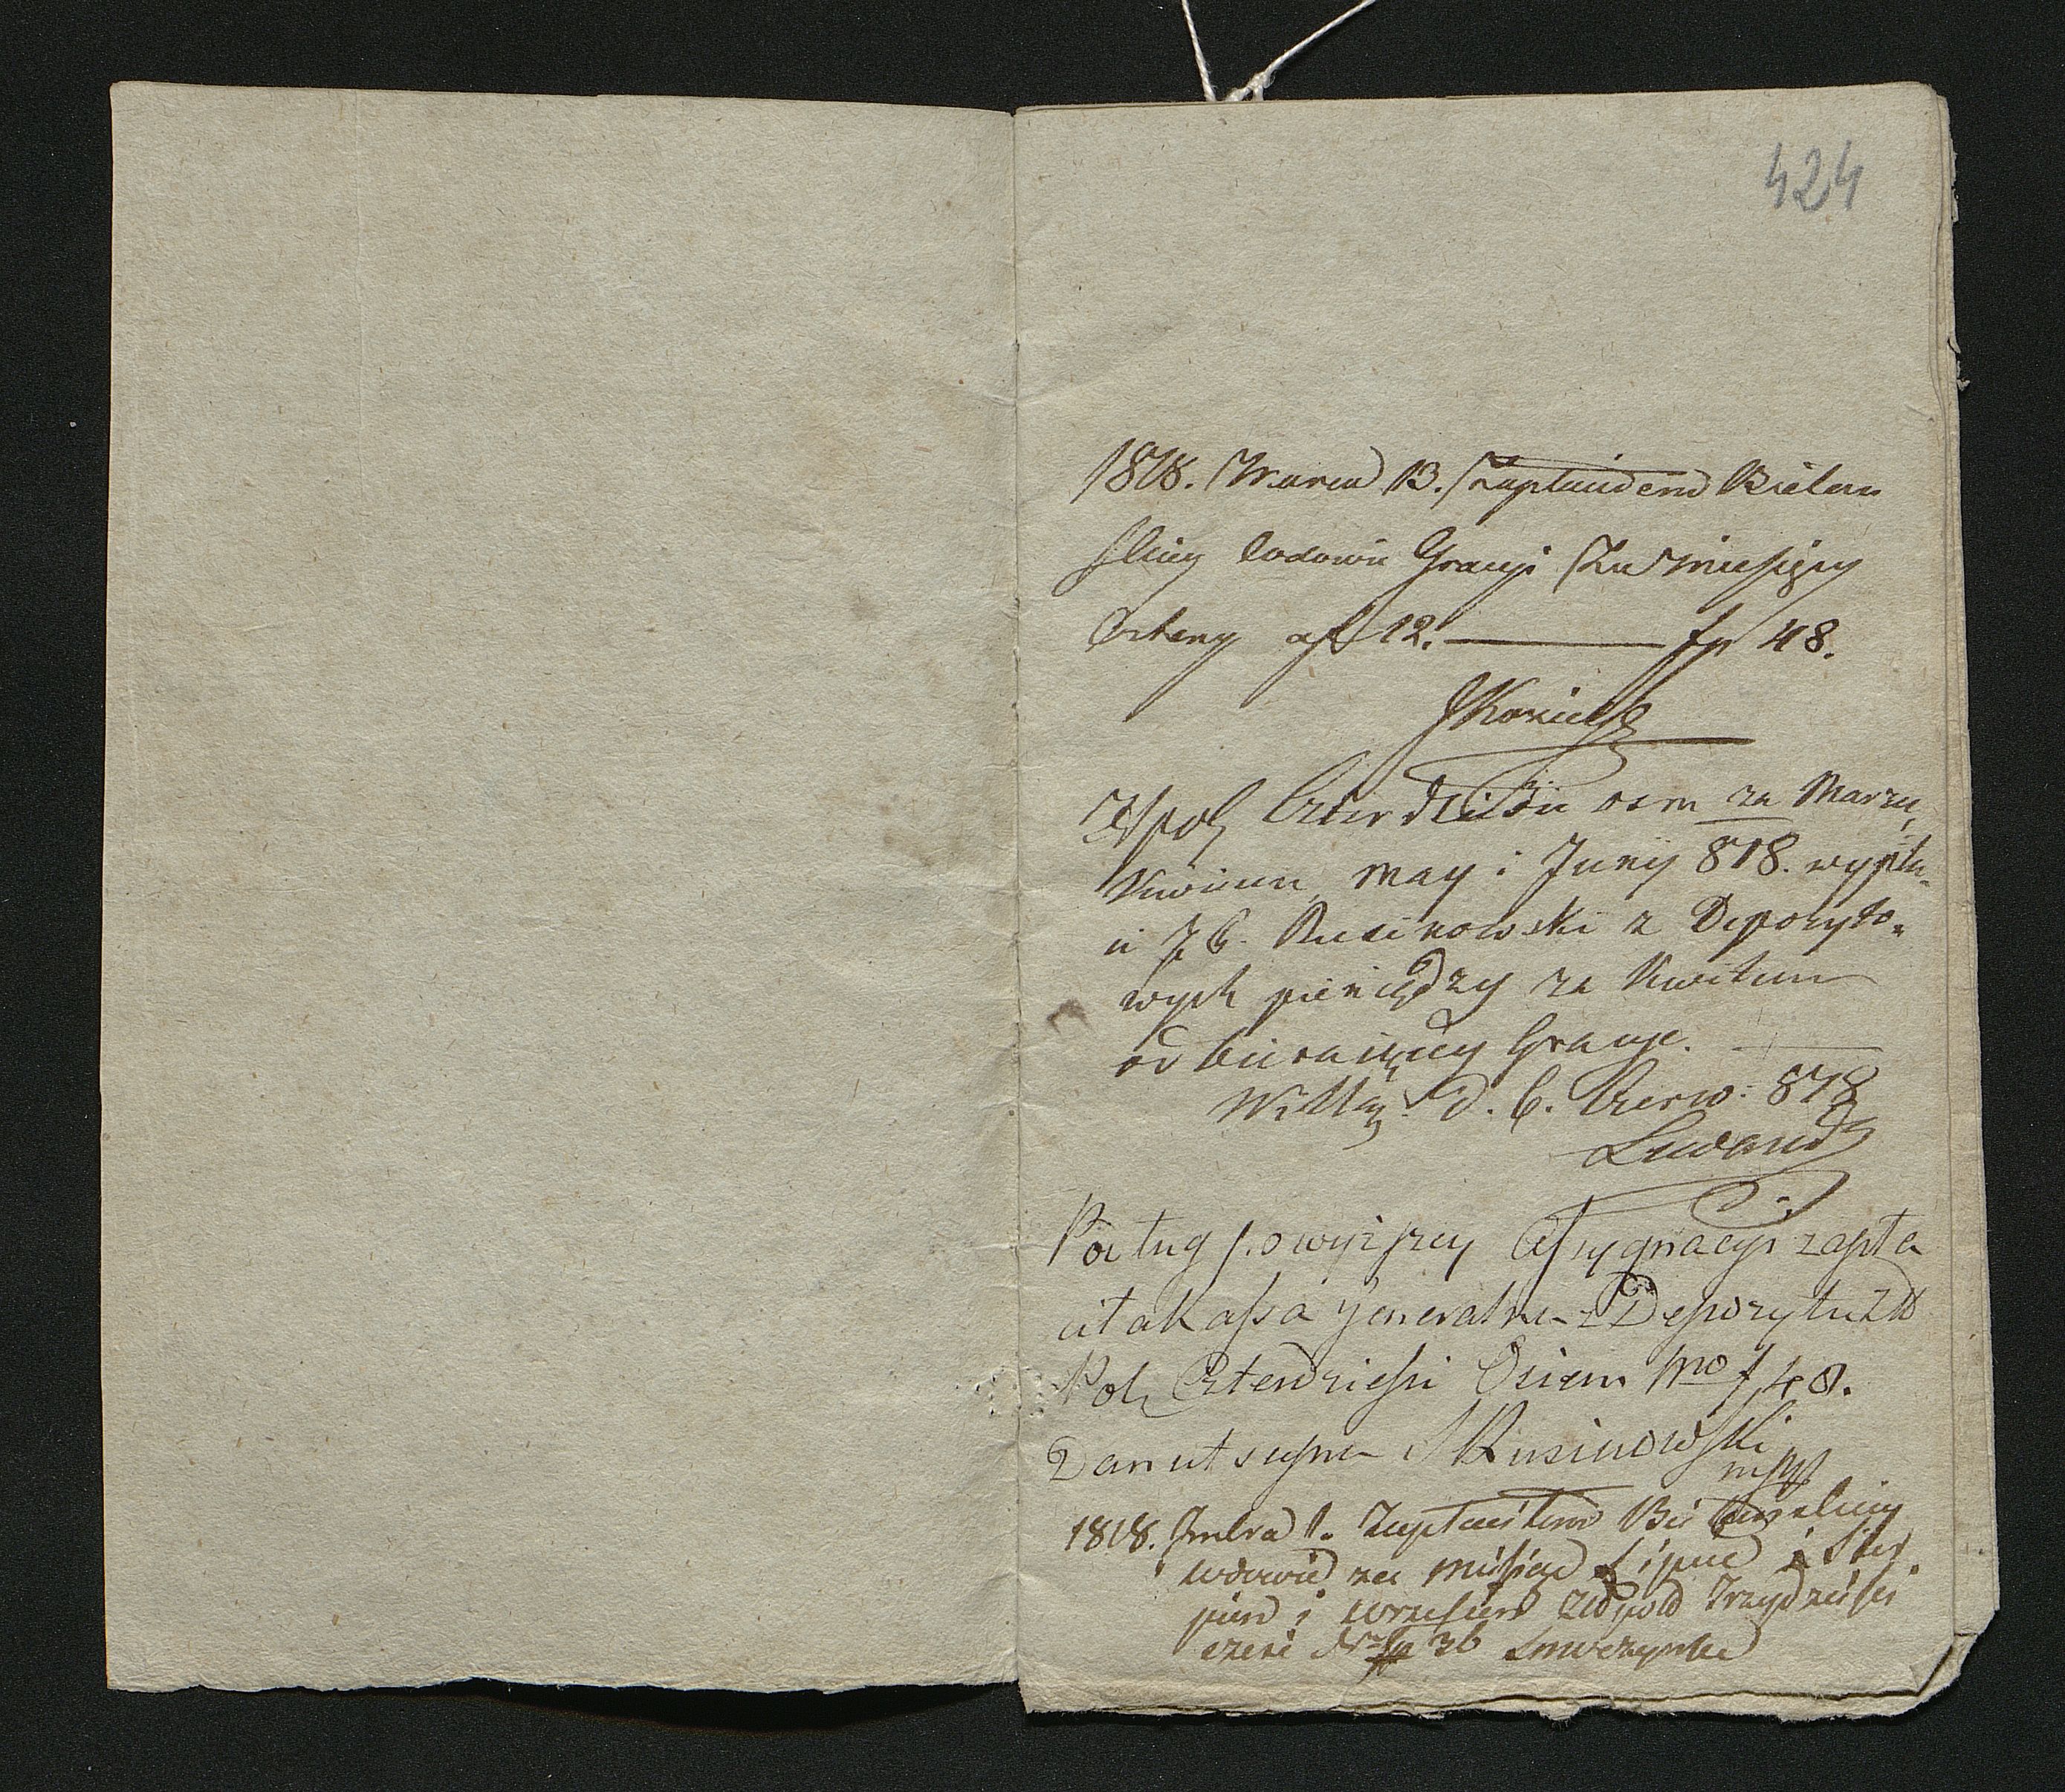 424
1818. Marca 13. Zapłaciłem Bielan
skiey wdowie Gracyi Za Miesięcy
Cztery af 12. — fp 48.
Zł pol Czterdzieści osm za Marzec,
Kwiecień, May i Juny 818. wypła-
ci JP. Rusinowski z Depozyto-
wych pieniędzy za Kwitem
odbieraiący Gracye.
d. 6. Czerw: 818
Podług powyższey Assygnacyi zapła
ciła Kassa Generalna z Depozytu Zł
Pol: Czterdzieści Osiem No f 48.
Dan ut supra Rusinowski
mpp
1818. 1. Zapłaciłem
wdowie za Miesiąc Lipiec i Sier
pień i wrzesień Zł pol Trzydzieści
sześć 36